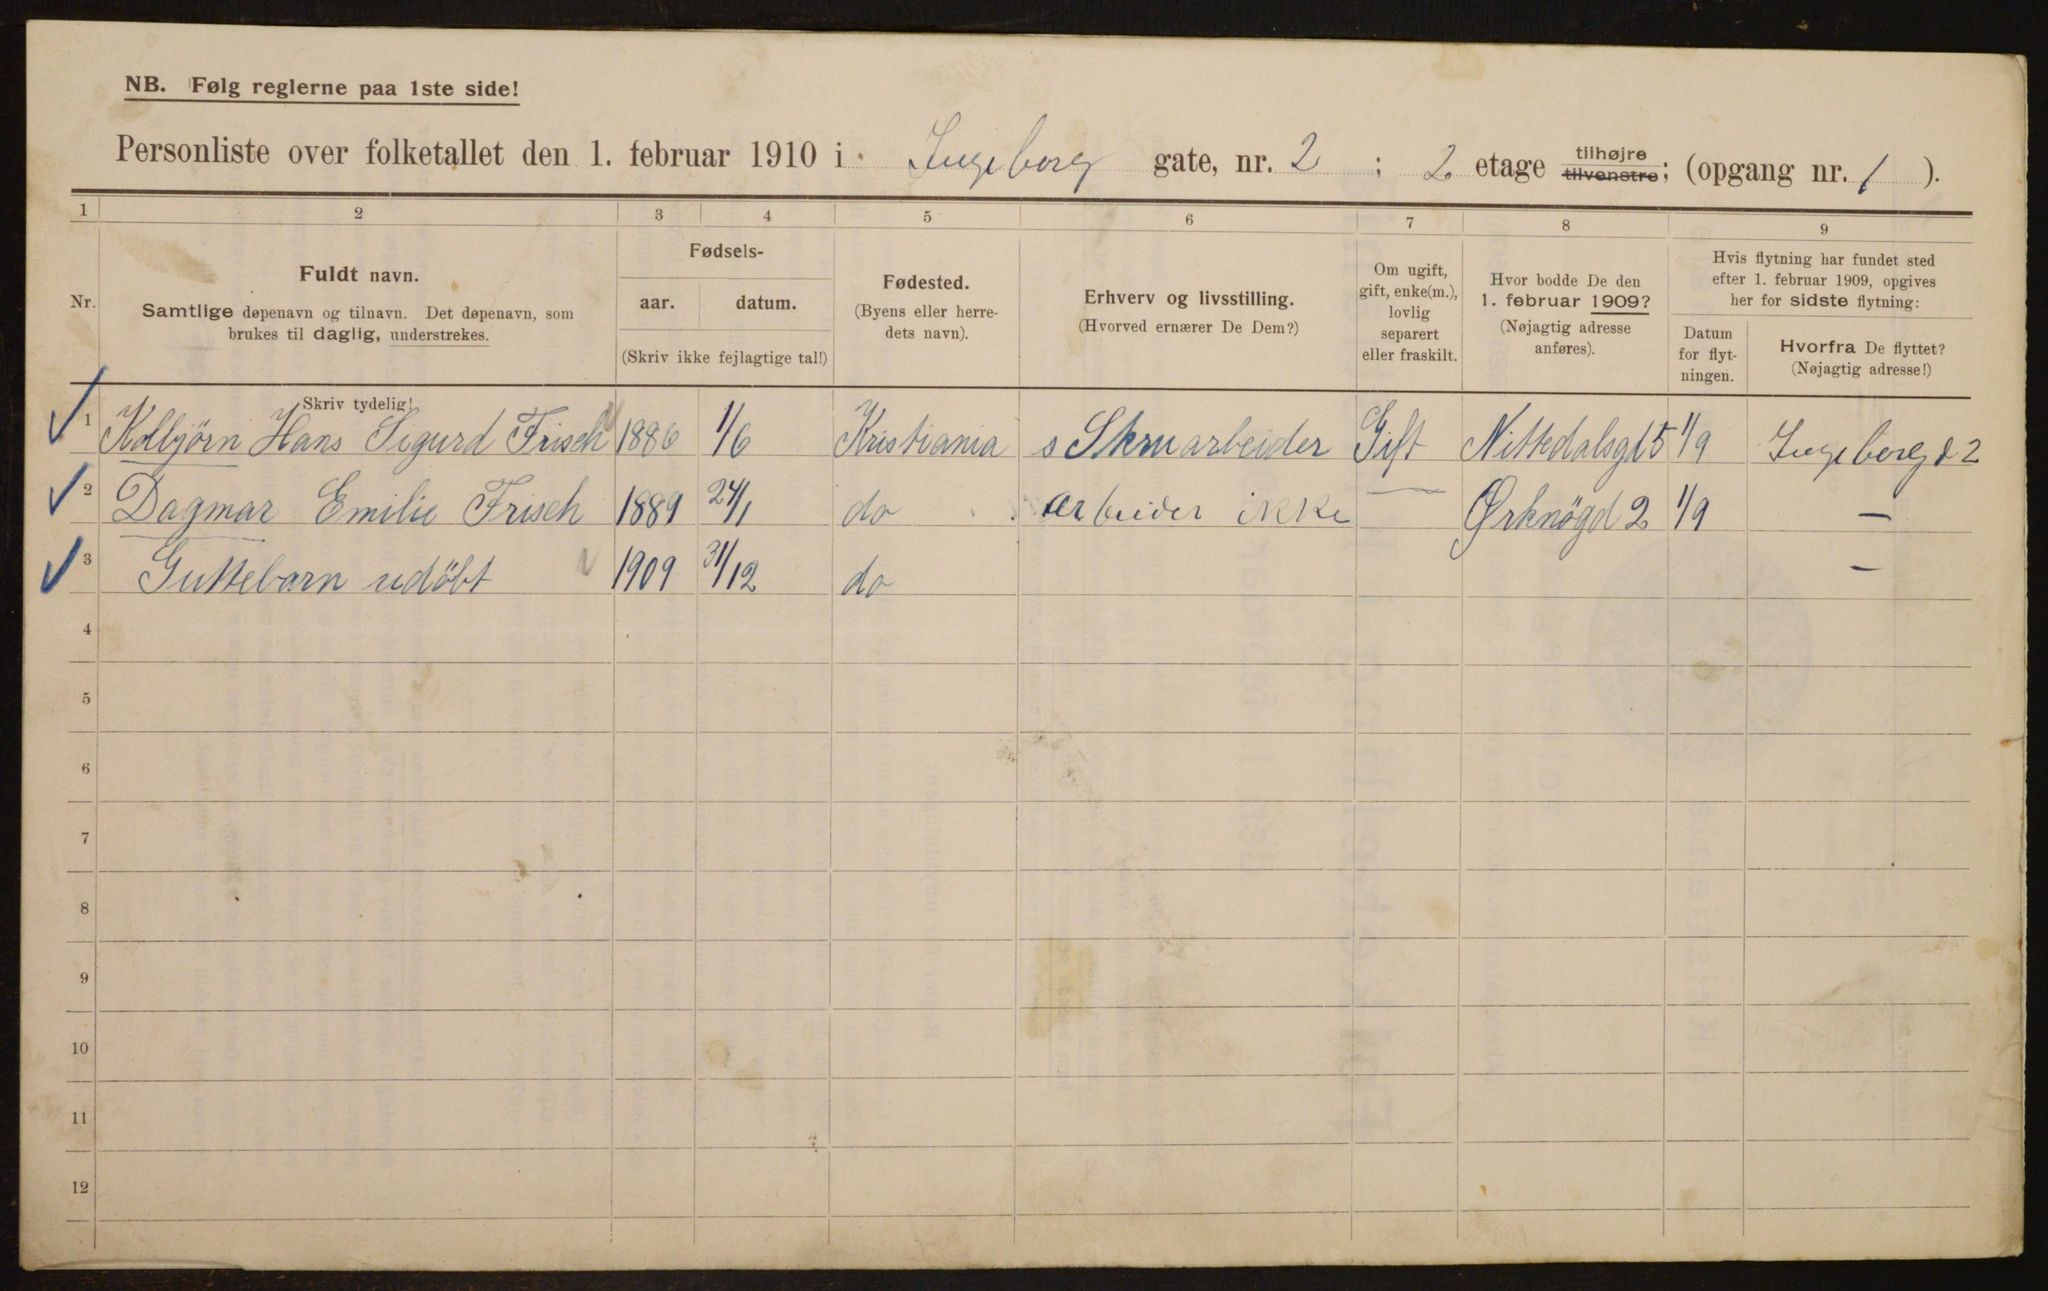 NB. Følg reglerne paa 1ste side!
Personliste over folketallet den 1. februar 1910 i Ingeborg gate, nr. 2 ; 2 etage tilhøjre tilvenstre; (opgang nr. 1 ).
1 2 3 4 5 6 7 8 9
Nr.
Fuldt navn.
Samtlige døpenavn og tilnavn. Det døpenavn, som
brukes til daglig, understrekes.
Fødsels-
aar. datum.
(Skriv ikke fejlagtige tal!)
Fødested.
(Byens eller herre-
dets navn).
Erhverv og livsstilling.
(Hvorved ernærer De Dem?)
Om ugift,
gift, enke(m.),
lovlig
separert
eller fraskilt.
Hvor bodde De den
1. februar 1909?
(Nøjagtig adresse
anføres).
Hvis flytning har fundet sted
efter 1. februar 1909, opgives
her for sidste flytning:
Datum
for flyt-
ningen.
Hvorfra De flyttet?
(Nøjagtig adresse!)
Skriv tydelig!
1 Kolbjörn Hans Sigurd Frisch 1886 1/6 Kristiania s Skruarbeider Gift Nittedalsgd 5 1/9 Ingeborgd 2
2 Dagmar Emilie Frisch 1889 24/1 do arbeider ikke — Ørknögd 2 1/9 —
3 Guttebarn udöbt 1909 31/12 do —
4
5
6
7
8
9
10
11
12